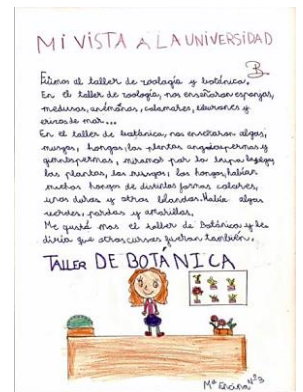 MI VISTA A LA UNIVERSIDAD
Fuimos al taller de zoología y botánica.
En el taller de zoología, nos enseñaron esponjas,
medusas, anémonas, calamares, tiburones y
erizos de mar...
En el taller de botánica, nos enseñaron algas,
musgos, hongos, las plantas angiospermas y
gimnospermas, miramos por la lupa
las plantas, los musgos, los hongos, habían
muchos hongos de distintas formas colores,
unos duros y otros blandos. Había algas
verdes, pardas y amarillas.
Me gustó mas el taller de Botánica y les
diría que otros cursos fueran también.
TALLER DE BOTÁNICA
Mª Encina 4º B